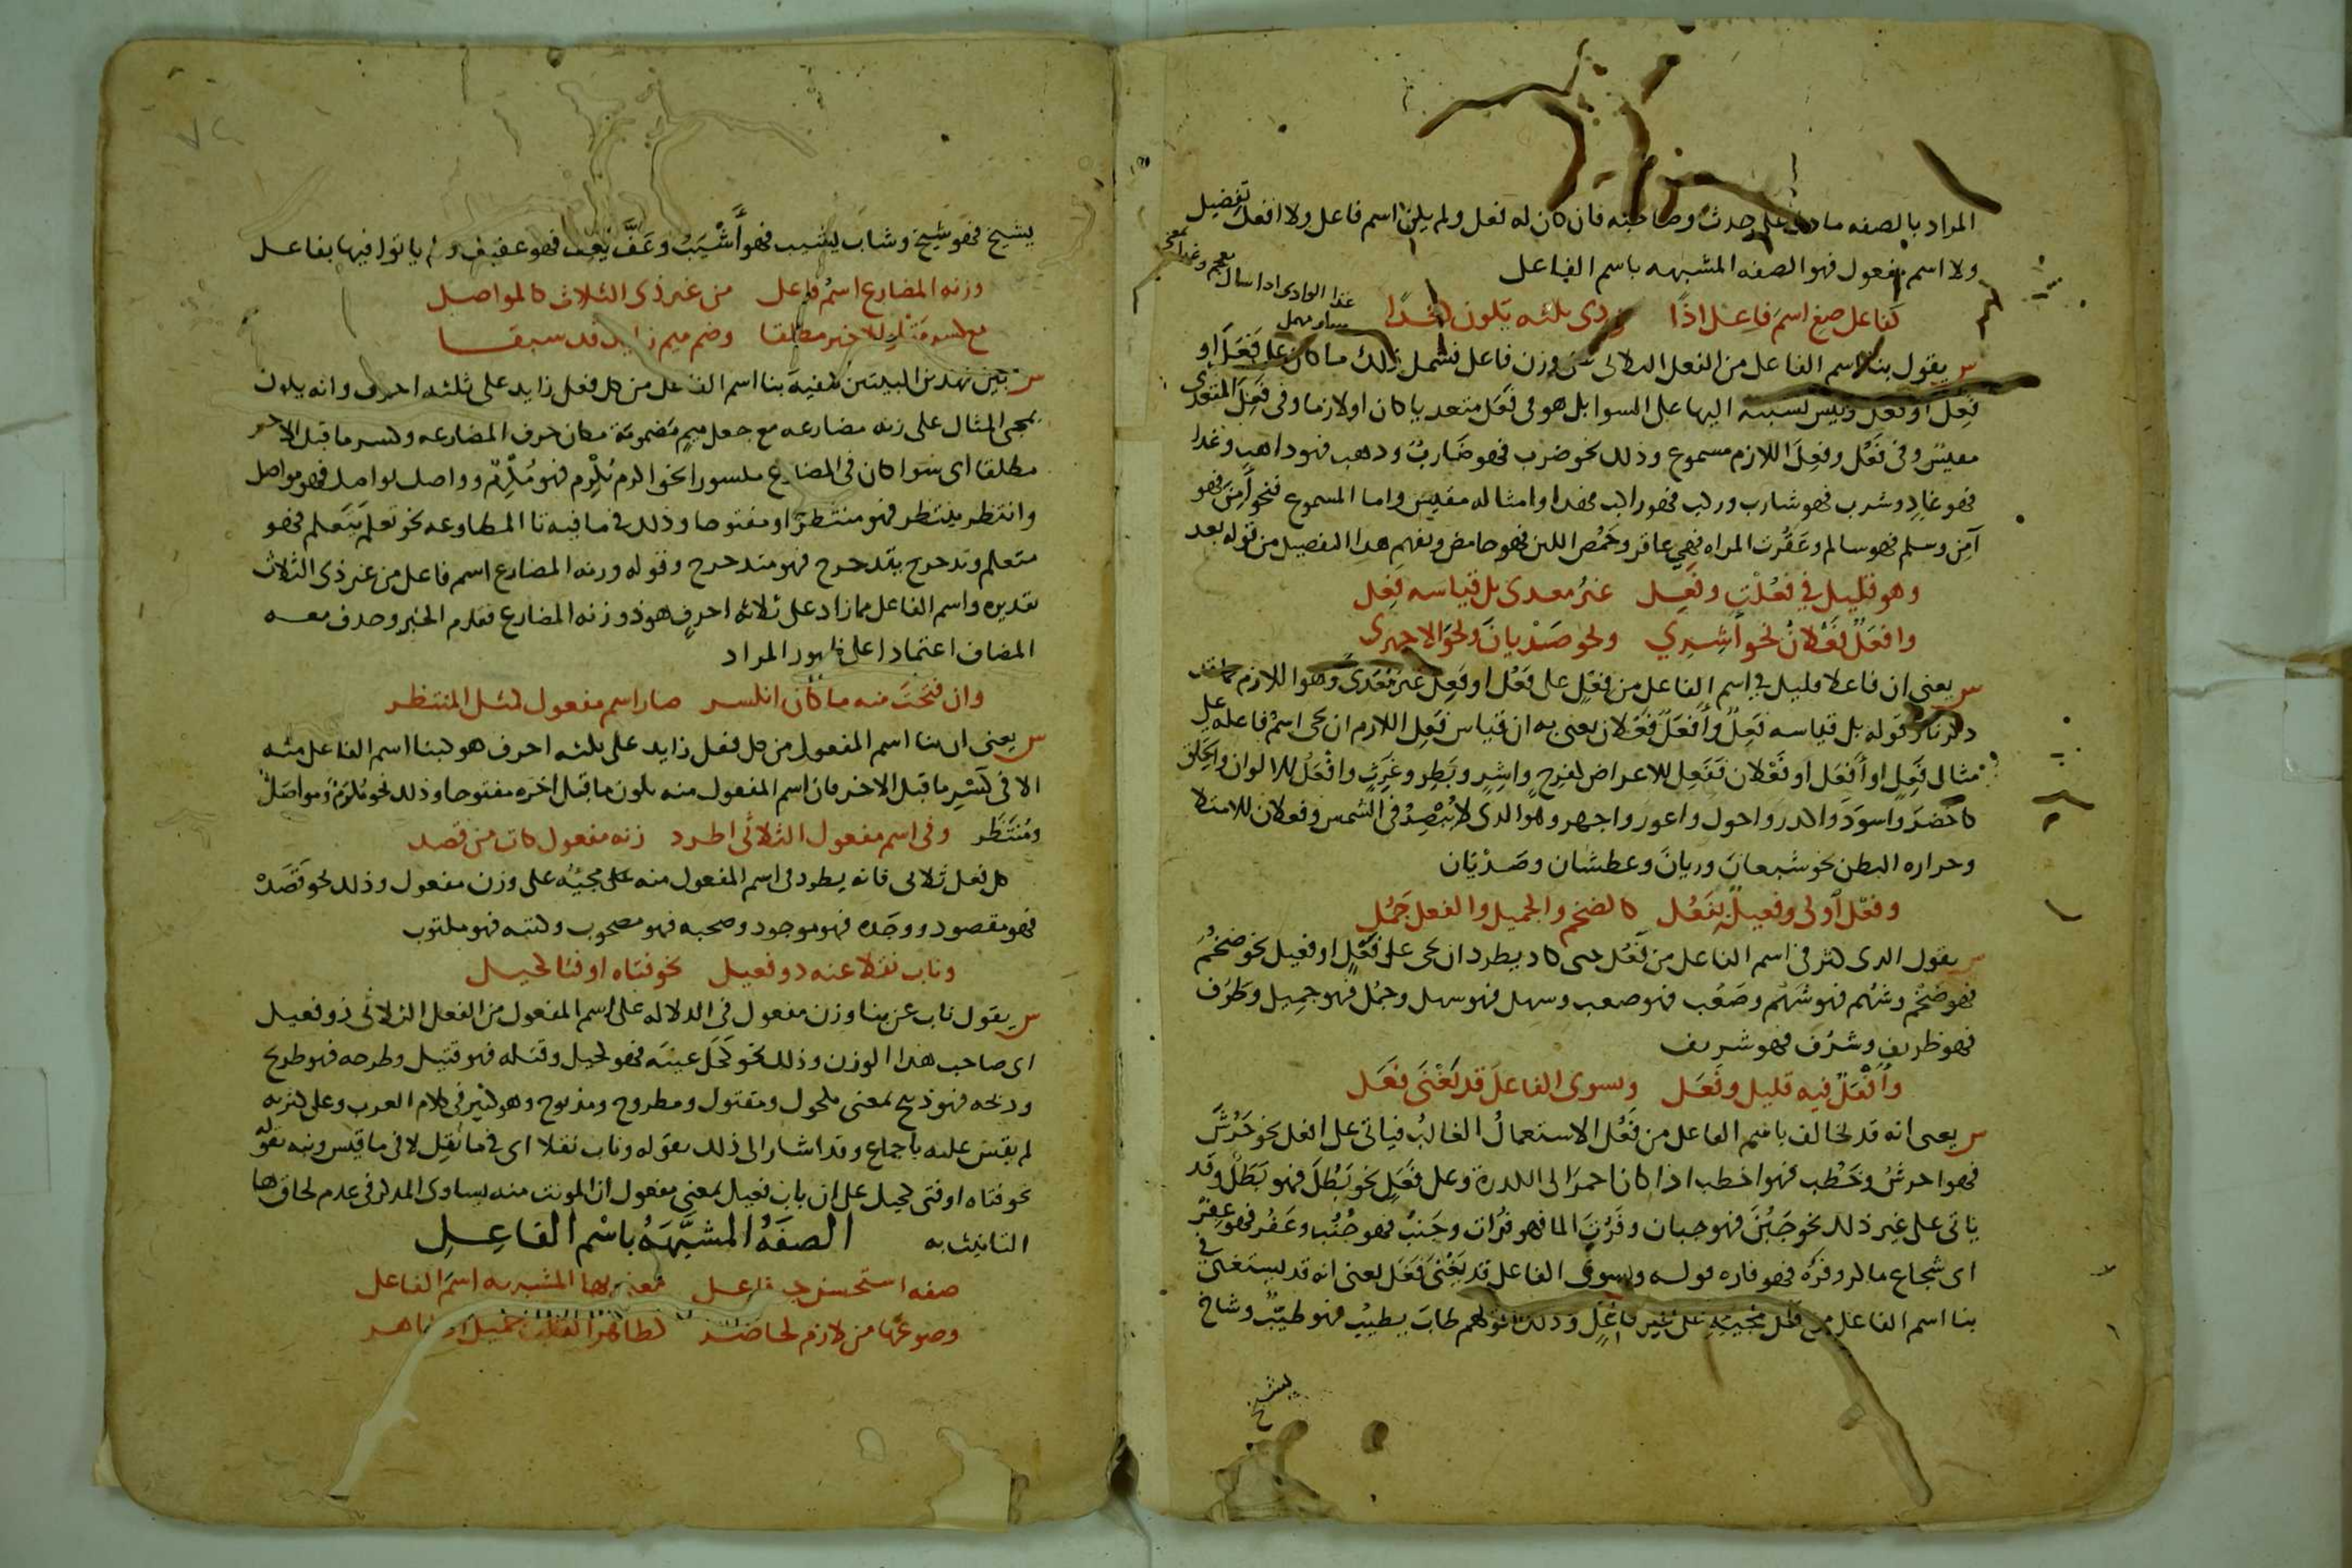 المراد بالصفه ما دل على حدث وصاحبه فان كان له فعل ولم يكن اسم فاعل ولا افعل تفضيل
ولا اسم مفعول فهو الصفه المشبهه باسم الفاعل
غذا الوادى اذا سال
كفاعل صغ اسم فاعل اذا من ذى ثلثه يكون كغذا
س يقول بناء اسم الفاعل من الفعل الثلاثى على وزن فاعل فشمل ذلك ما كان على فَعَل او
فعِل او فعُل وليس نسبته اليها على السوا بل هو فى فَعَل متعديا كان او لازما وفى فَعِل المتعدى
مقيس وفى فَعُل وفعِل اللازم مسموع وذلك نحو ضرب فهو ضَارب وذهب فهو ذاهب وغذا
فهو غاذٍ وشرب فهو شارب وركب فهو راكب فهذا وامثاله مقيس واما المسموع فنحو أمِنَ فهو
آمِن وسلم فهو سالم وعَقُرت المراه فهي عاقر وحَمُض اللبن فهو حامض ويفهم هذا التفصيل من قوله بعد
وهو قليل في فعُلْت وفعِل غيرُ معدى بل قياسه فعِل
وافعَلٌ فَعْلانُ نحو أشِرِ ونحو صَدْيانَ ونحو الاجهر
س يعنى ان فاعلا قليل في اسم الفاعل من فِعْلٍ على فَعُل او فَعِل غير مُعَدى وهو اللازم كما قد
ذكرنا وقوله بل قياسه فَعِلٌ وأفعَلٌ فَعْلان يعنى به ان قياس فَعِل اللازم ان يجى اسمُ فاعله على
مثال فَعِلٍ او أفعَل او فَعْلان فَفَعِل للاعراض كفرِحٍ واشِرٍ وبَطِرٍ وغَرِثٍ وافْعَل للالوان والخِلَق
كاخضرَ واسوَدَ واكدر واحول واعور واجهر وهو الذى لا يُبْصِرُ فى الشمس وفعلان للامتلا
وحراره البطن نحو شبعانَ وريانَ وعطشان وصَدْيَان
وفعْل أولى وفعيلٌ بفَعُل كالضخم والجميل والفعل جَمُل
س يقول الذى كثر فى اسم الفاعل من فَعُل حتى كاد يطرد ان يجى على فَعْلٍ او فعيل نحو ضخُمَ
فهو ضَخْم وشهُم فهو شَهْم وصَعُب فهو صعب وسهل فهو سهل وجمُل فهو جميل وظرُف
فهو ظريف وشرُف فهو شريف
وأفْعَلٌ فيه قليل وفَعَل وبسوى الفاعل قد يَغْنَى فَعَل
س يعنى انه قد يخالف باسم الفاعل من فَعُل الاستعمالُ الغالبُ فياتى على افعل نحو حَرُشَ
فهو احرش وخَطُب فهو اخطب اذا كان احمر الى الكدرة وعلى فَعَلٍ نحو بَطُلَ فهو بَطَلٌ وقد
ياتى على غير ذلك نحو جَبُنَ فهو جبان وفَرُتَ الما فهو فُرَات وجَنُبَ فهو جُنُب وعَفُر فهو عِفْرٌ
اى شجاع ماكر وفَرُهَ فهو فاره قوله وبسوى الفاعل قد يَغْنَى فَعَل يعنى انه قد يستغنى فى
بنا اسم الفاعل من فَعَل بمجيئه على غير فاعلٍ وذلك قولهم طابَ يطيب فهو طيّبٌ وشاخ
يشيخ
يشيخ فهو شيخ وشابَ يشيب فهو أَشْيَبُ وعَفَّ يَعِف فهو عفيف ولم ياتوا فيها بفاعل
وزنه المضارع اسمُ فاعل من غير ذى الثلاث كالمواصل
مع كسر مَتْلوِ الاخير مطلقا وضم ميم زايد قد سبقا
س بيّن بهذين البيتين كيفيةَ بنا اسم الفاعل من كل فعل زايد على ثلثه احرف وانه يكون
بمجى المثال على زنه مضارعه مع جعل ميمٍ مَضمومَة مكان حرف المضارعه وكسر ما قبل الاخر
مطلقا اى سوا كان فى المضارع مكسورا نحو اكرم يُكْرِم فهو مُكْرِمٌ وواصل يواصل فهو مواصل
وانتظر ينتظر فهو منتظرٌ او مفتوحا وذلك فى ما فيه تا المطاوعه نحو تعلَّم يَتَعلم فهو
متعلم وتدحرج يتدحرج فهو متدحرج وقوله وزنه المضارع اسم فاعل من غير ذى الثلاث
تقديره واسم الفاعل مما زاد على ثلاثه احرفٍ هو ذو وزنه المضارع فقدم الخبر وحذف معه
المضاف اعتمادا على ظهور المراد
وان فتحتَ منه ما كان انكسر صار اسم مفعول كمثل المنتظر
س يعنى ان بنا اسم المفعول من كل فعل زايد على ثلثه احرف هو كبنا اسم الفاعل منه
الا فى كَسْرِ ما قبل الاخر فان اسم المفعول منه يكون ما قبل اخره مفتوحا وذلك نحو مُكْرَمٌ ومواصَلٌ
ومُنْتَظَر وفى اسم مفعول الثلاثى اطرد زنه مفعول كاتٍ من قصد
كل فعل ثلاثى فانه يطرد فى اسم المفعول منه على مجيئُه على وزن مفعول وذلك نحو قَصَدْ
فهو مقصود ووجَده فهو موجود وصحبه فهو مصحوب وكتبه فهو مكتوب
وناب نقلا عنه ذو فعيل نحو فتاه او فتا كحيل
س يقول ناب عن بنا وزن مفعول فى الدلاله على اسم المفعول من الفعل الثلاثى ذو فعيل
اى صاحب هذا الوزن وذلك نحو كَحَلَ عينَه فهو كحيل وقتله فهو قتيل وطرحه فهو طريح
وذبحه فهو ذبيح بمعنى مكحول ومقتول ومطروح ومذبوح وهو كثير فى كلام العرب وعلى كثرته
لم يقسْ عليه باجماع وقد اشار الى ذلك بقوله وناب نقلا اى فى ما نُقِل لا فى ما قيس ونبه بقوله
نحو فتاه او فتى كحيل على ان باب فعيل بمعنى مفعول ان المونث منه يساوى المذكر فى عدم لحاق ها
التانيث به الصفَةُ المشبَّهَةُ باسْم الفاعِلِ
صفه استحسن جر فاعل معنى بها المشبه به اسمَ الفاعل
وصوغُها من لازم لحاضر كطاهر القلب جميل الظاهر